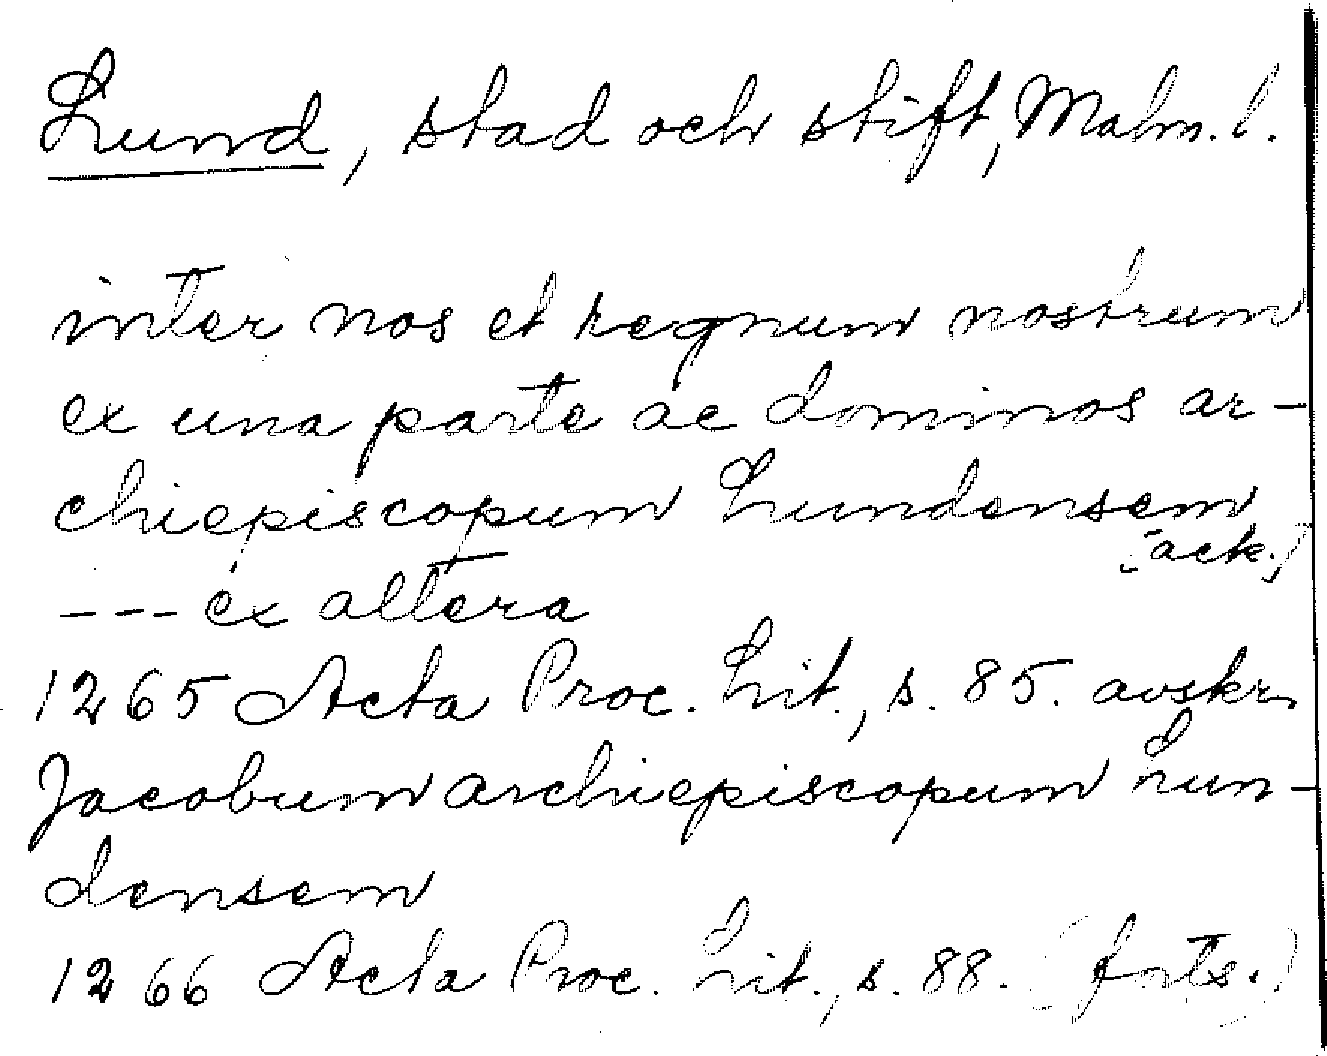 Lund, stad och stift, Malm. l.
inter nos et regnum nostrum
ex una parte ac dominos ar-
chiepiscopum Lundensem
[ack.]
--- ex altera
1265 Acta Proc. Lit., s. 85. avskr.
Jacobum archiepiscopum Lun-
densem
1266 Acta Proc. Lit., s. 88. (forts.)